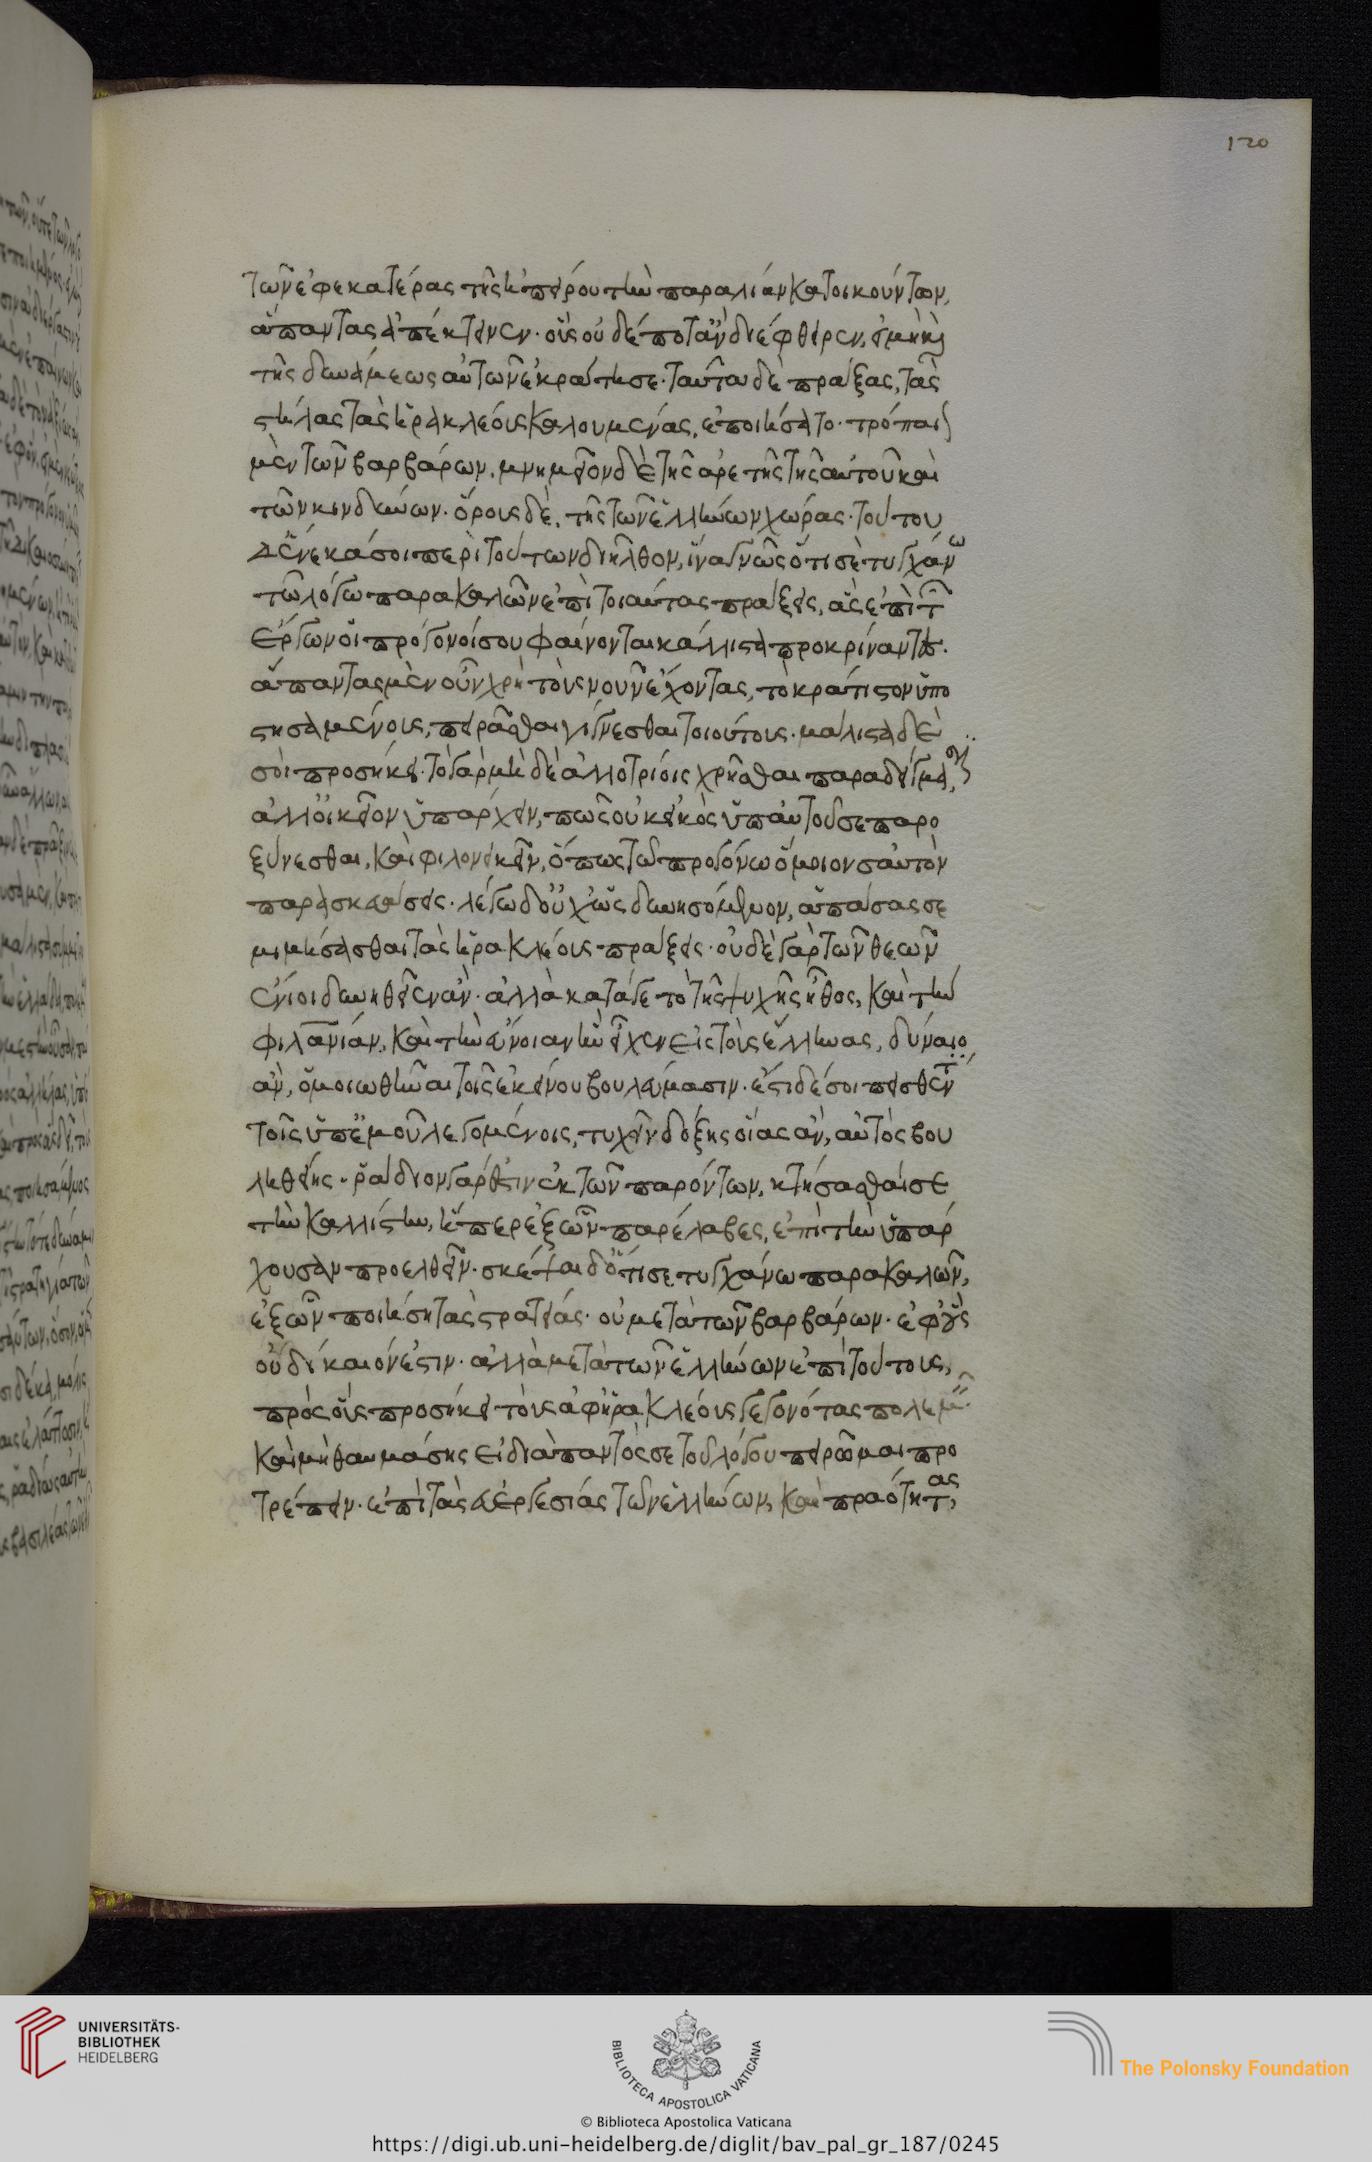 120
τῶν ἐφ' ἑκατέρας τῆς ἠπείρου τὴν παραλίαν κατοικούντων,
ἅπαντας ἀπέκτεινεν· οὓς οὐδέποτ' ἂν διέφθειρεν, εἰ μὴ καὶ
τῆς δυνάμεως αὐτῶν ἐκράτησε. ταῦτα δὲ πράξας, τὰς
στήλας τὰς Ἡρακλέους καλουμένας, ἐποιήσατο· τρόπαιον
μὲν τῶν βαρβάρων, μνημεῖον δὲ τῆς ἀρετῆς τῆς αὑτοῦ καὶ
τῶν κινδύνων· ὅρους δὲ, τῆς τῶν ἑλλήνων χώρας. τούτου
δ' ἕνεκά σοι περὶ τούτων διῆλθον, ἵνα γνῷς ὅτι σὲ τυγχάνω
τῷ λόγῳ παρακαλῶν ἐπὶ τοιαύτας πράξεις, ἃς ἐπὶ τῶν
ἔργων οἱ πρόγονοί σου φαίνονται κάλλιστα προκρίναντες.
ἅπαντας μὲν οὖν χρὴ τοὺς νοῦν ἔχοντας, τὸ κράτιστον ὑπο
στησαμένους, πειρᾶσθαι γίγνεσθαι τοιούτους· μάλιστα δὲ
σοὶ προσήκει. τὸ γὰρ μὴ δὲ ἀλλοτρίοις χρῆσθαι παραδείγμασιν,
ἀλλ' οἰκεῖον ὑπάρχειν, πῶς οὐκ εἰκὸς ὑπ' αὐτοῦ σε παρο
ξύνεσθαι, καὶ φιλονεικεῖν, ὅπως τῷ προγόνῳ ὅμοιον σαυτὸν
παρασκευάσεις. λέγω δ' οὐχ ὡς δυνησόμενον, ἁπάσας σε
μιμήσασθαι τὰς Ἡρακλέους πράξεις· οὐδὲ γὰρ τῶν θεῶν
ἔνιοι δυνηθεῖεν ἄν· ἀλλὰ κατά γε τὸ τῆς ψυχῆς ἦθος, καὶ τὴν
φιλανίαν, καὶ τὴν εὔνοιαν ἣν εἶχεν εἰς τοὺς ἕλληνας, δύναιο
ἂν, ὁμοιωθῆναι τοῖς ἐκείνου βουλεύμασιν. ἔστι δέ σοι πεισθέντι
τοῖς ὑπ' ἐμοῦ λεγομένοις, τυχεῖν δόξης οἵας ἂν, αὐτὸς βου
ληθείης· ῥᾴδιον γάρ ἐστιν ἐκ τῶν παρόντων, κτήσασθαί σε
τὴν καλλίστην, ἤπερ ἐξ ὧν παρέλαβες, ἐπὶ τὴν ὑπάρ
χουσαν προελθεῖν. σκέψαι δ' ὅτι σε τυγχάνω παρακαλῶν,
ἐξ ὧν ποιήσῃ τὰς στρατείας· οὐ μετὰ τῶν βαρβάρων· ἐφ' οὓς
οὐ δίκαιόν ἐστιν· ἀλλὰ μετὰ τῶν ἑλλήνων ἐπὶ τούτους,
πρὸς οὓς προσήκει τοὺς ἀφ' Ἡρακλέους γεγονότας πολεμεῖν.
καὶ μὴ θαυμάσῃς εἰ διὰ παντός σε τοῦ λόγου πειρῶμαι προ
τρέπειν· ἐπὶ τὰς εὐεργεσίας τῶν ἑλλήνων, καὶ πραότητας,
UNIVERSITÄTS-
BIBLIOTHEK
HEIDELBERG
BIBLIOTECA APOSTOLICA VATICANA
The Polonsky Foundation
© Biblioteca Apostolica Vaticana
https://digi.ub.uni-heidelberg.de/diglit/bav_pal_gr_187/0245